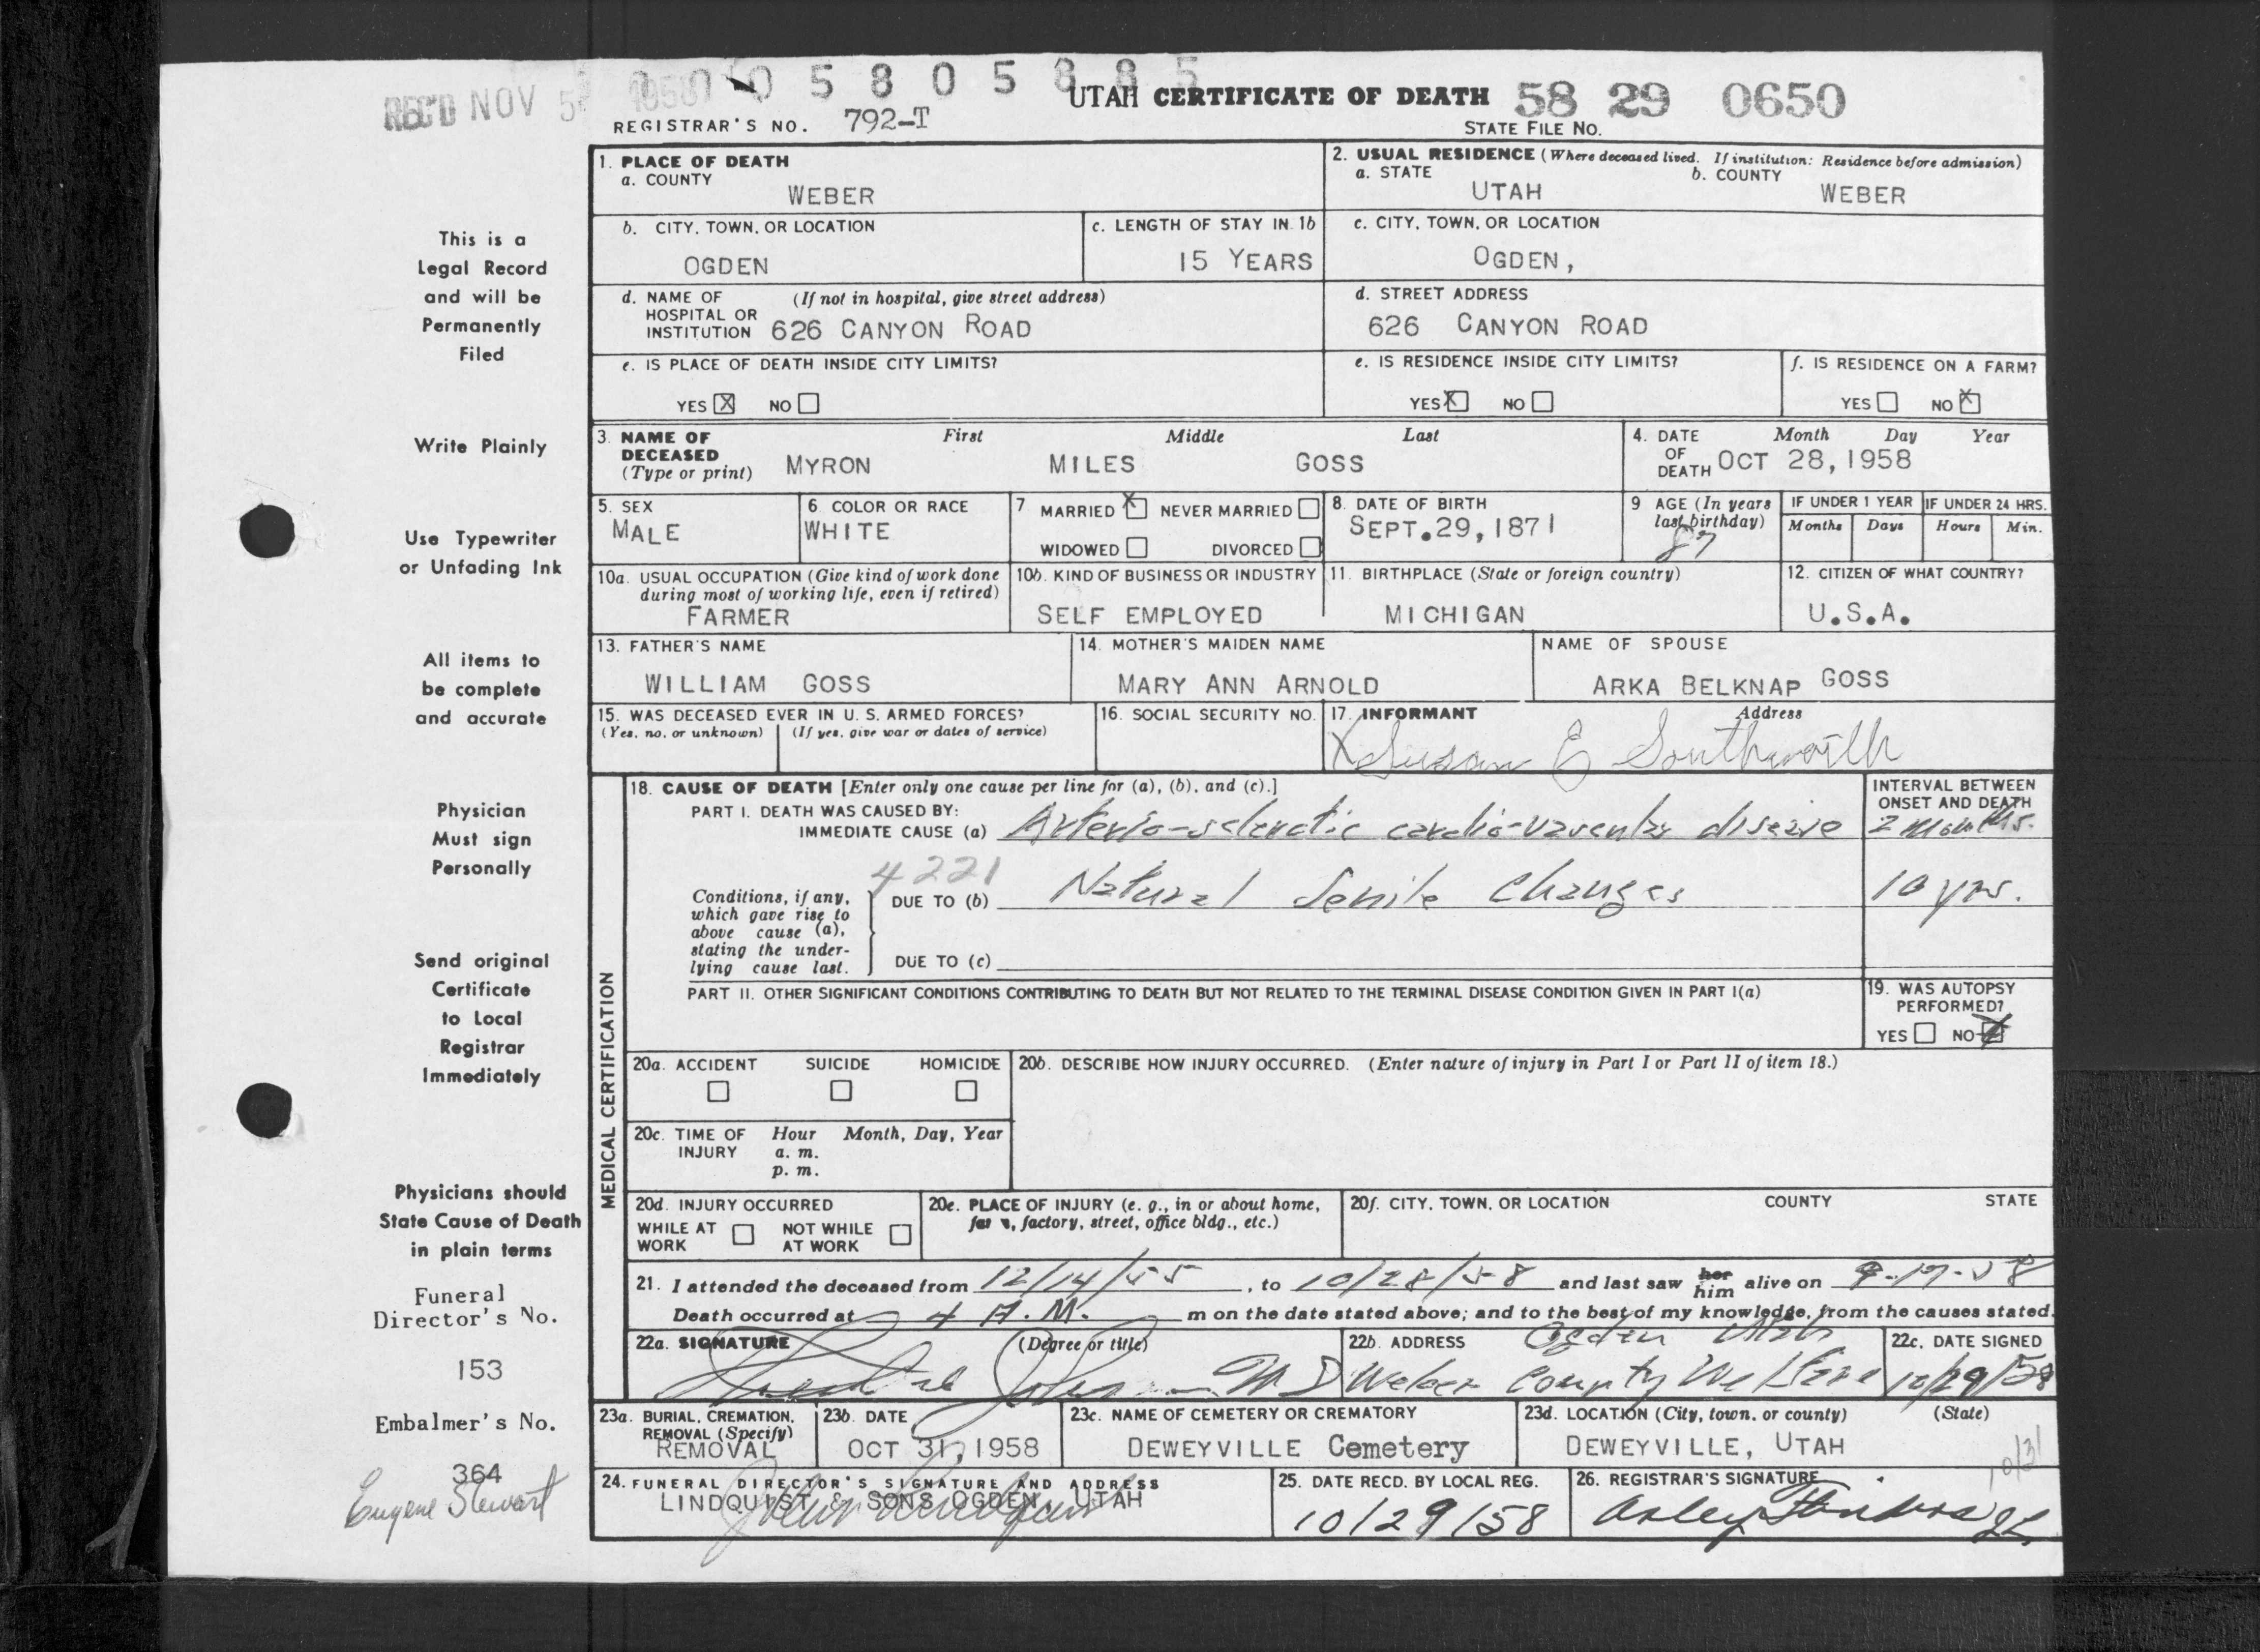 REC'D NOV 5 1958
0 0 5 8 0 5 8 8 5
UTAH CERTIFICATE OF DEATH 58 29 0650
REGISTRAR'S NO. 792-T STATE FILE NO.
1. PLACE OF DEATH
a. COUNTY WEBER
2. USUAL RESIDENCE (Where deceased lived. If institution: Residence before admission)
a. STATE UTAH b. COUNTY WEBER
b. CITY, TOWN, OR LOCATION OGDEN
c. LENGTH OF STAY IN 1b 15 YEARS
c. CITY, TOWN, OR LOCATION OGDEN,
d. NAME OF HOSPITAL OR INSTITUTION (If not in hospital, give street address) 626 CANYON ROAD
d. STREET ADDRESS 626 CANYON ROAD
e. IS PLACE OF DEATH INSIDE CITY LIMITS?
YES X NO
e. IS RESIDENCE INSIDE CITY LIMITS?
YES X NO
f. IS RESIDENCE ON A FARM?
YES NO X
3. NAME OF DECEASED (Type or print) First Middle Last
MYRON MILES GOSS
4. DATE OF DEATH Month Day Year
OCT 28, 1958
5. SEX MALE
6. COLOR OR RACE WHITE
7 MARRIED X NEVER MARRIED
WIDOWED DIVORCED
8. DATE OF BIRTH SEPT.29,1871
9 AGE (In years last birthday) 87
IF UNDER 1 YEAR Months Days
IF UNDER 24 HRS. Hours Min.
10a. USUAL OCCUPATION (Give kind of work done during most of working life, even if retired) FARMER
10b. KIND OF BUSINESS OR INDUSTRY SELF EMPLOYED
11. BIRTHPLACE (State or foreign country) MICHIGAN
12. CITIZEN OF WHAT COUNTRY? U.S.A.
13. FATHER'S NAME WILLIAM GOSS
14. MOTHER'S MAIDEN NAME MARY ANN ARNOLD
NAME OF SPOUSE ARKA BELKNAP GOSS
15. WAS DECEASED EVER IN U. S. ARMED FORCES?
(Yes, no, or unknown) (If yes, give war or dates of service)
16. SOCIAL SECURITY NO.
17. INFORMANT Address
X Susan E Southworth
MEDICAL CERTIFICATION
18. CAUSE OF DEATH [Enter only one cause per line for (a), (b), and (c).]
INTERVAL BETWEEN ONSET AND DEATH
PART I. DEATH WAS CAUSED BY:
IMMEDIATE CAUSE (a) Arterio-sclerotic cardio-vascular disease 2 months.
4221
Conditions, if any, which gave rise to above cause (a), stating the underlying cause last.
DUE TO (b) Natural Senile Changes 10 yrs.
DUE TO (c)
PART II. OTHER SIGNIFICANT CONDITIONS CONTRIBUTING TO DEATH BUT NOT RELATED TO THE TERMINAL DISEASE CONDITION GIVEN IN PART I(a)
19. WAS AUTOPSY PERFORMED?
YES NO X
20a. ACCIDENT SUICIDE HOMICIDE
20b. DESCRIBE HOW INJURY OCCURRED. (Enter nature of injury in Part I or Part II of item 18.)
20c. TIME OF INJURY Hour Month, Day, Year
a. m.
p. m.
20d. INJURY OCCURRED
WHILE AT WORK NOT WHILE AT WORK
20e. PLACE OF INJURY (e. g., in or about home, factory, street, office bldg., etc.)
20f. CITY, TOWN, OR LOCATION COUNTY STATE
21. I attended the deceased from 12/14/55, to 10/28/58 and last saw her him alive on 9-17-58
Death occurred at 4 A.M. m on the date stated above; and to the best of my knowledge, from the causes stated.
22a. SIGNATURE (Degree or title) MD
22b. ADDRESS Ogden Utah
Weber County Welfare
22c. DATE SIGNED 10/29/58
23a. BURIAL, CREMATION, REMOVAL (Specify) REMOVAL
23b. DATE OCT 31, 1958
23c. NAME OF CEMETERY OR CREMATORY DEWEYVILLE Cemetery
23d. LOCATION (City, town, or county) (State) DEWEYVILLE, UTAH
10/31
24. FUNERAL DIRECTOR'S SIGNATURE AND ADDRESS
LINDQUIST & SONS OGDEN, UTAH
25. DATE RECD. BY LOCAL REG. 10/29/58
26. REGISTRAR'S SIGNATURE
This is a
Legal Record
and will be
Permanently
Filed
Write Plainly
Use Typewriter
or Unfading Ink
All items to
be complete
and accurate
Physician
Must sign
Personally
Send original
Certificate
to Local
Registrar
Immediately
Physicians should
State Cause of Death
in plain terms
Funeral
Director's No.
153
Embalmer's No.
364
Eugene Stewart